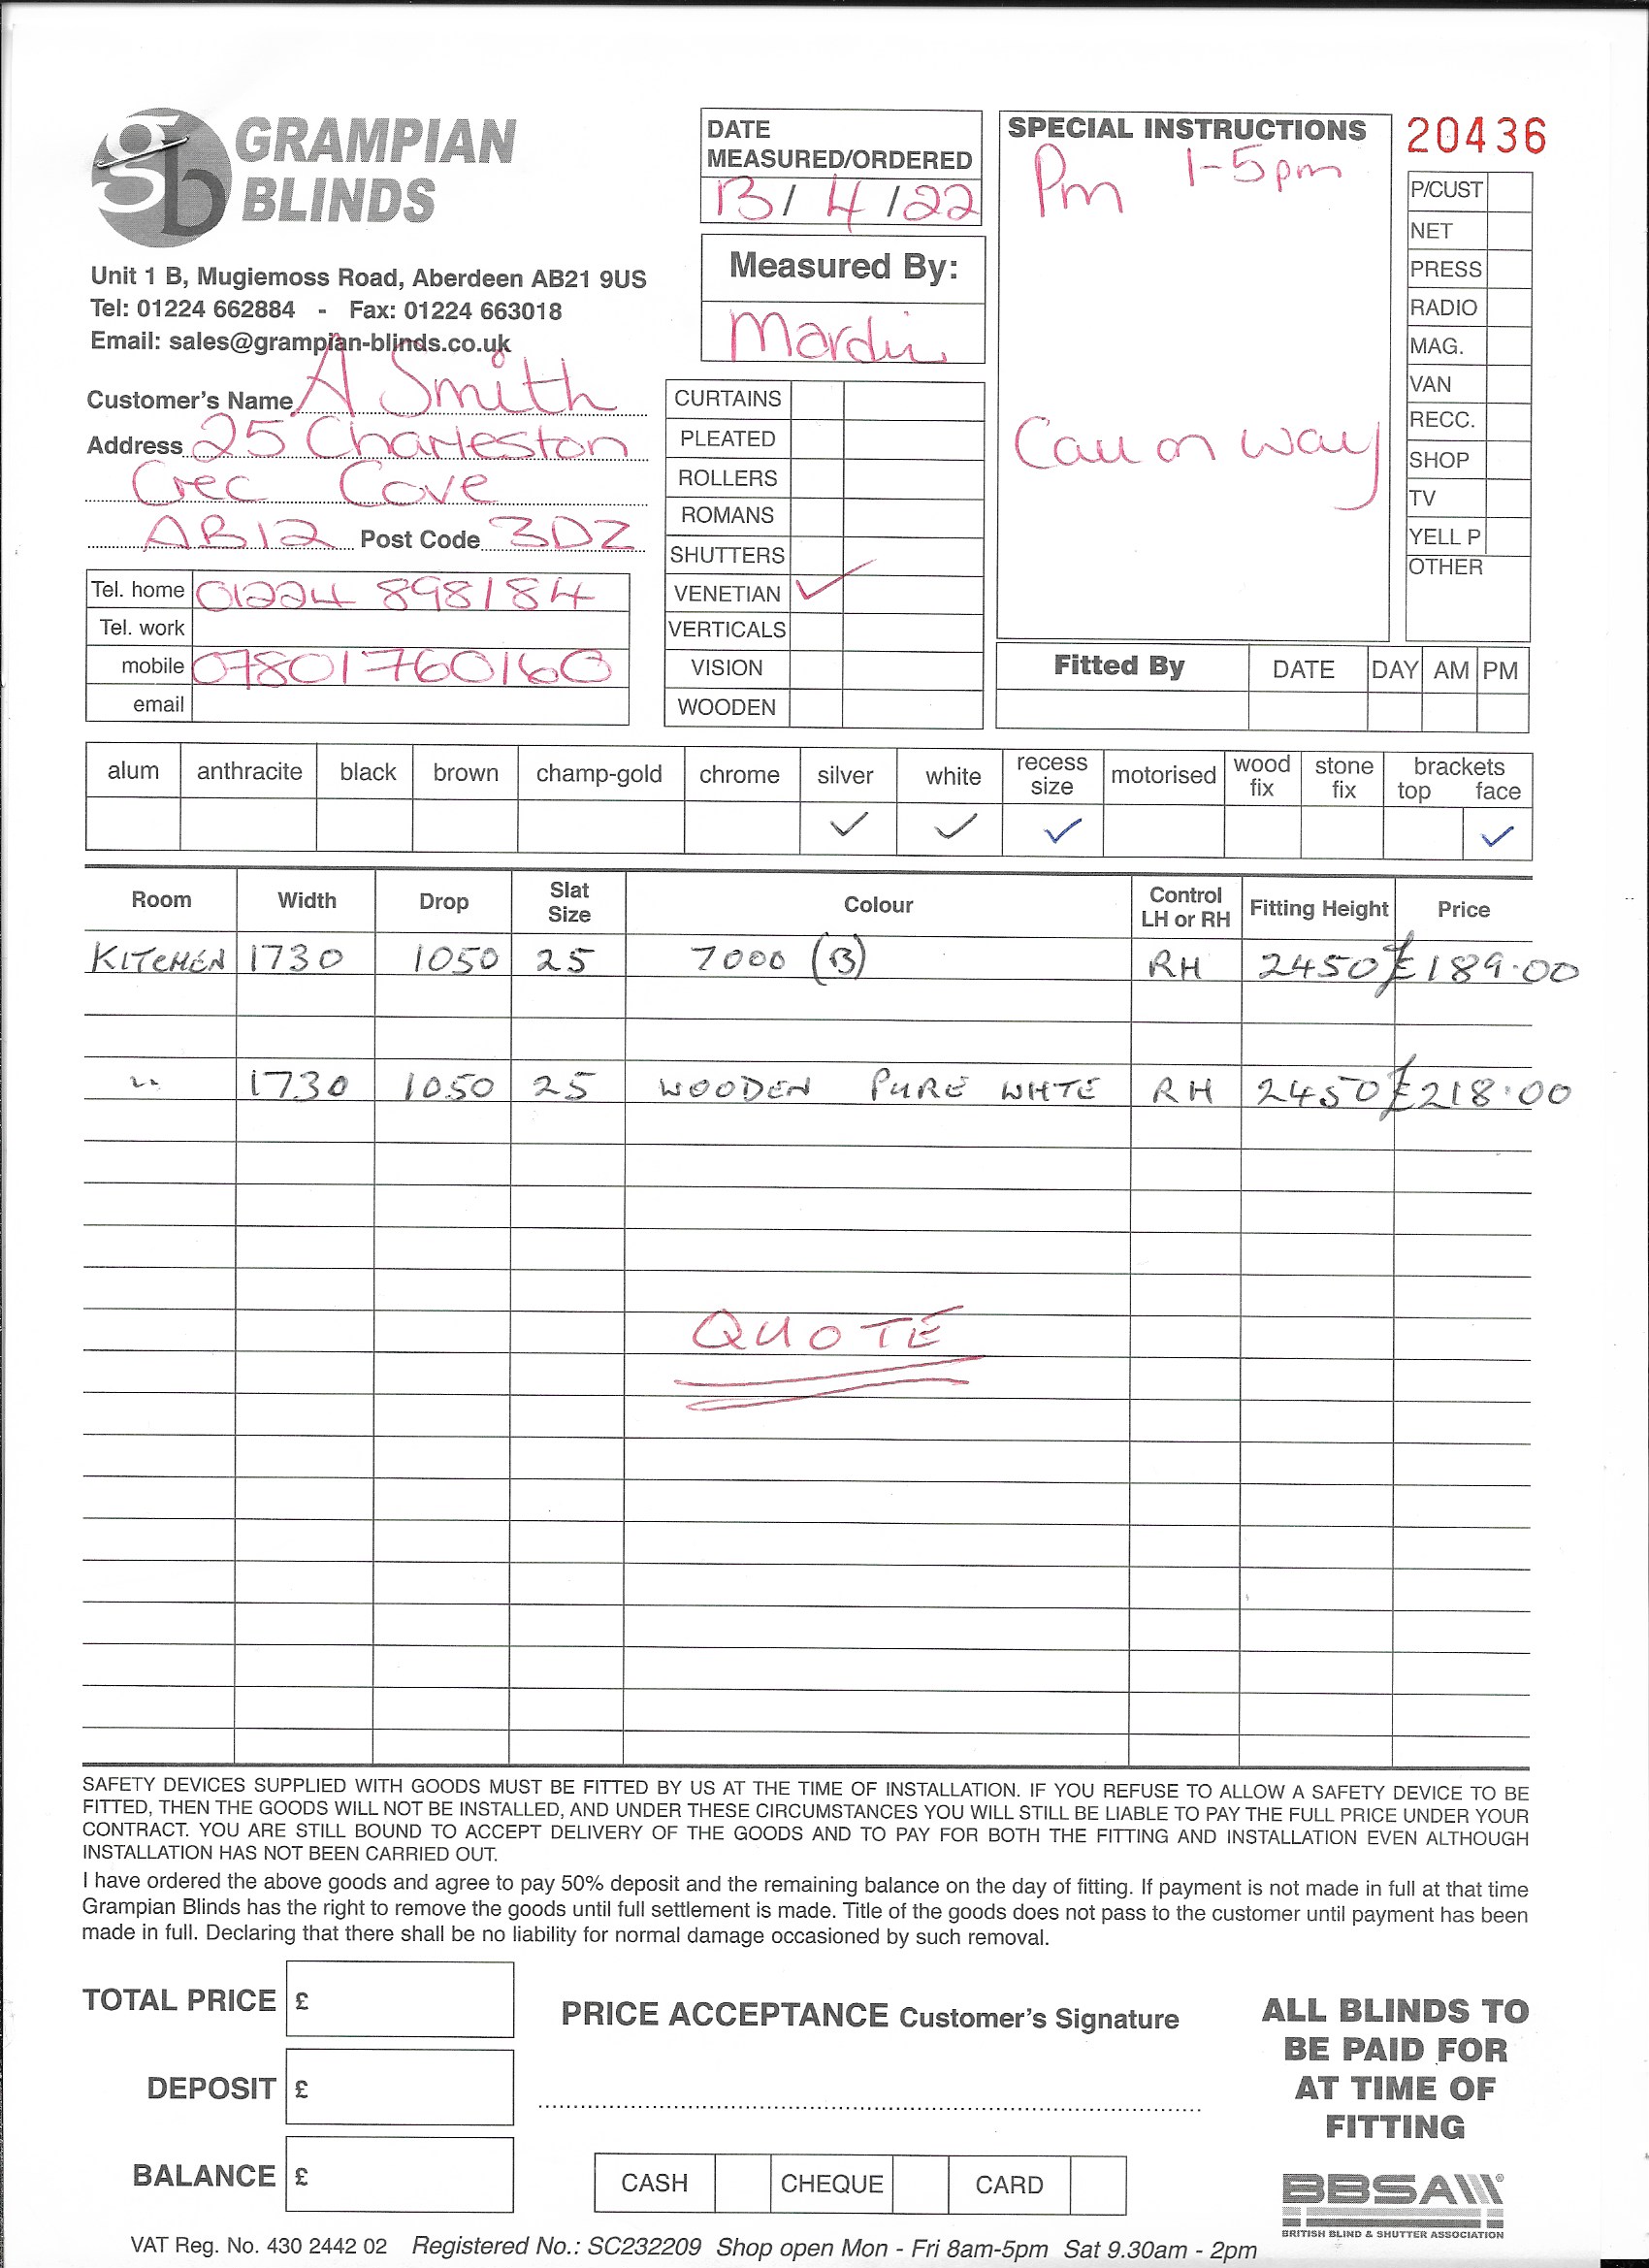 GRAMPIAN
BLINDS
Unit 1 B, Mugiemoss Road, Aberdeen AB21 9US
Tel: 01224 662884 - Fax: 01224 663018
Email: sales@grampian-blinds.co.uk
Customer's Name A Smith
Address 25 Charleston
Crec Cove
AB12 Post Code 3DZ
Tel. home 01224 898184
Tel. work
mobile 07801760160
email
DATE
MEASURED/ORDERED
13/ 4 /22
Measured By:
CURTAINS
PLEATED
ROLLERS
ROMANS
SHUTTERS
VENETIAN ✓
VERTICALS
VISION
WOODEN
SPECIAL INSTRUCTIONS
Pm 1-5pm
Call on way
20436
P/CUST
NET
PRESS
RADIO
MAG.
VAN
RECC.
SHOP
TV
YELL P
OTHER
Fitted By DATE DAY AM PM
alum anthracite black brown champ-gold chrome silver white recess size motorised wood fix stone fix brackets top face
✓ ✓ ✓ ✓
Room Width Drop Slat Size Colour Control LH or RH Fitting Height Price
KITCHEN 1730 1050 25 7000 (B) RH 2450 £189.00
" 1730 1050 25 WOODEN PURE WHTE RH 2450 £218.00
QUOTE
SAFETY DEVICES SUPPLIED WITH GOODS MUST BE FITTED BY US AT THE TIME OF INSTALLATION. IF YOU REFUSE TO ALLOW A SAFETY DEVICE TO BE
FITTED, THEN THE GOODS WILL NOT BE INSTALLED, AND UNDER THESE CIRCUMSTANCES YOU WILL STILL BE LIABLE TO PAY THE FULL PRICE UNDER YOUR
CONTRACT. YOU ARE STILL BOUND TO ACCEPT DELIVERY OF THE GOODS AND TO PAY FOR BOTH THE FITTING AND INSTALLATION EVEN ALTHOUGH
INSTALLATION HAS NOT BEEN CARRIED OUT.
I have ordered the above goods and agree to pay 50% deposit and the remaining balance on the day of fitting. If payment is not made in full at that time
Grampian Blinds has the right to remove the goods until full settlement is made. Title of the goods does not pass to the customer until payment has been
made in full. Declaring that there shall be no liability for normal damage occasioned by such removal.
TOTAL PRICE £
DEPOSIT £
BALANCE £
PRICE ACCEPTANCE Customer's Signature
CASH CHEQUE CARD
ALL BLINDS TO
BE PAID FOR
AT TIME OF
FITTING
BBSA
BRITISH BLIND & SHUTTER ASSOCIATION
VAT Reg. No. 430 2442 02 Registered No.: SC232209 Shop open Mon - Fri 8am-5pm Sat 9.30am - 2pm